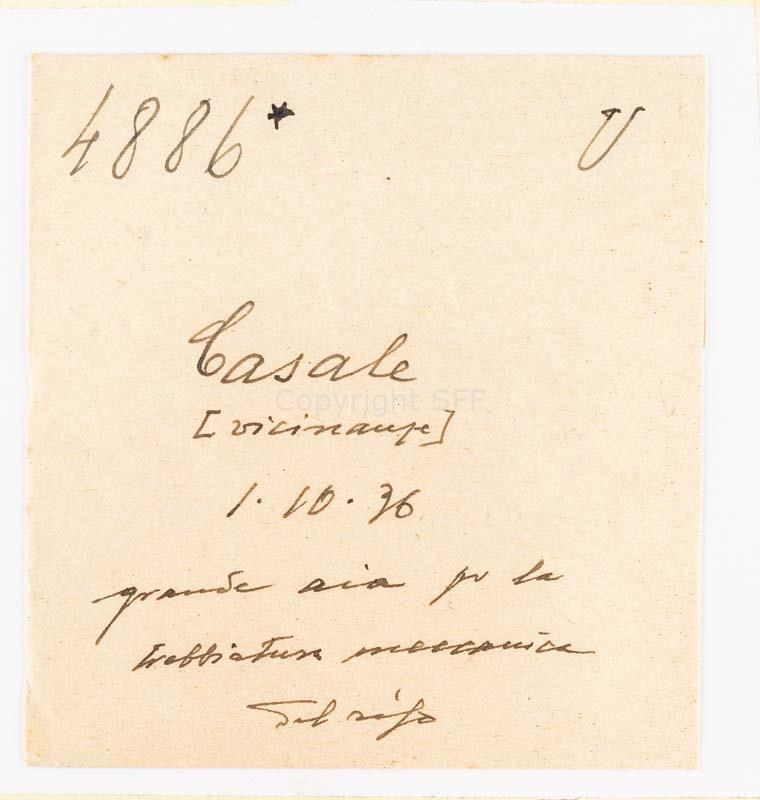 4886* U
Casale
Copyright SFF
[vicinanze]
1.10.36
grande aia per la
trebbiatura meccanica
del riso